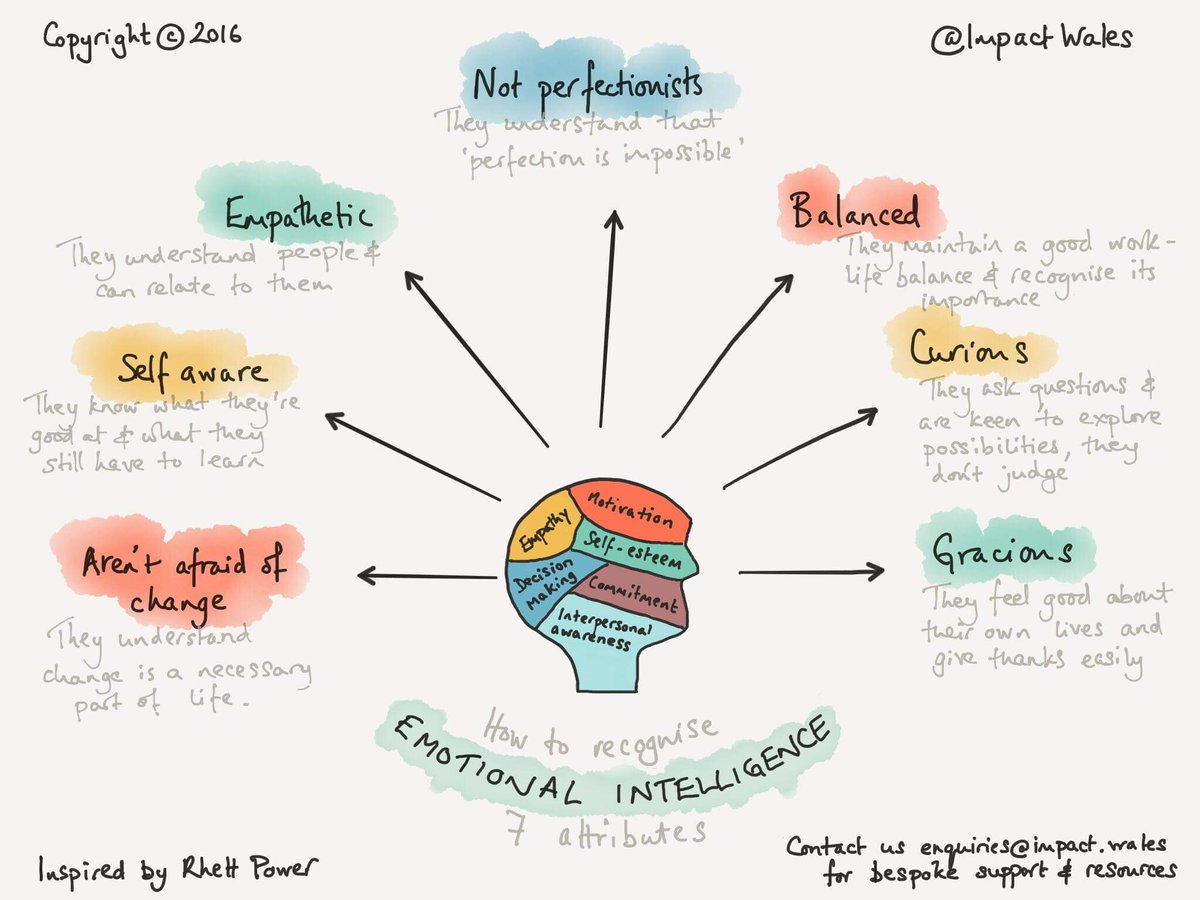 Copyright © 2016
@ImpactWales
Not perfectionists
They understand that
'perfection is impossible'
Empathetic
They understand people &
can relate to them
Balanced
They maintain a good work-
life balance & recognise its
importance
Self aware
They know what they're
good at & what they
still have to learn
Curious
They ask questions &
are keen to explore
possibilities, they
don't judge
Aren't afraid of
change
They understand
change is a necessary
part of life.
Gracious
They feel good about
their own lives and
give thanks easily
Motivation
Empathy
Self-esteem
Decision
making
Commitment
Interpersonal
awareness
How to recognise
EMOTIONAL INTELLIGENCE
7 attributes
Inspired by Rhett Power
Contact us enquiries@impact.wales
for bespoke support & resources